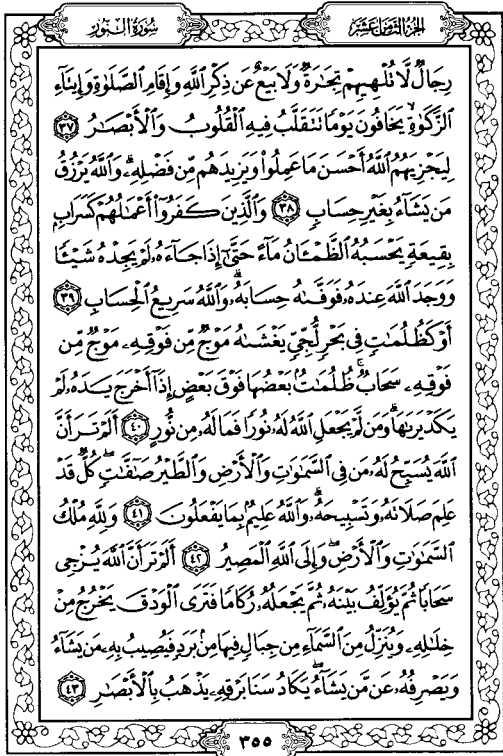 سُورَةُ النُّورِ الجزء الثامن عشر
رِجَالٌ لَّا تُلْهِيهِمْ تِجَٰرَةٌ وَلَا بَيْعٌ عَن ذِكْرِ ٱللَّهِ وَإِقَامِ ٱلصَّلَوٰةِ وَإِيتَآءِ
ٱلزَّكَوٰةِ يَخَافُونَ يَوْمًا تَتَقَلَّبُ فِيهِ ٱلْقُلُوبُ وَٱلْأَبْصَٰرُ ٣٧
لِيَجْزِيَهُمُ ٱللَّهُ أَحْسَنَ مَا عَمِلُوا۟ وَيَزِيدَهُم مِّن فَضْلِهِۦ وَٱللَّهُ يَرْزُقُ
مَن يَشَآءُ بِغَيْرِ حِسَابٍ ٣٨ وَٱلَّذِينَ كَفَرُوٓا۟ أَعْمَٰلُهُمْ كَسَرَابٍۭ
بِقِيعَةٍ يَحْسَبُهُ ٱلظَّمْـَٔانُ مَآءً حَتَّىٰٓ إِذَا جَآءَهُۥ لَمْ يَجِدْهُ شَيْـًٔا
وَوَجَدَ ٱللَّهَ عِندَهُۥ فَوَفَّىٰهُ حِسَابَهُۥ وَٱللَّهُ سَرِيعُ ٱلْحِسَابِ ٣٩
أَوْ كَظُلُمَٰتٍ فِى بَحْرٍ لُّجِّىٍّ يَغْشَىٰهُ مَوْجٌ مِّن فَوْقِهِۦ مَوْجٌ مِّن
فَوْقِهِۦ سَحَابٌ ظُلُمَٰتٌۢ بَعْضُهَا فَوْقَ بَعْضٍ إِذَآ أَخْرَجَ يَدَهُۥ لَمْ
يَكَدْ يَرَىٰهَا وَمَن لَّمْ يَجْعَلِ ٱللَّهُ لَهُۥ نُورًا فَمَا لَهُۥ مِن نُّورٍ ٤٠ أَلَمْ تَرَ أَنَّ
ٱللَّهَ يُسَبِّحُ لَهُۥ مَن فِى ٱلسَّمَٰوَٰتِ وَٱلْأَرْضِ وَٱلطَّيْرُ صَٰٓفَّٰتٍ كُلٌّ قَدْ
عَلِمَ صَلَاتَهُۥ وَتَسْبِيحَهُۥ وَٱللَّهُ عَلِيمٌۢ بِمَا يَفْعَلُونَ ٤١ وَلِلَّهِ مُلْكُ
ٱلسَّمَٰوَٰتِ وَٱلْأَرْضِ وَإِلَى ٱللَّهِ ٱلْمَصِيرُ ٤٢ أَلَمْ تَرَ أَنَّ ٱللَّهَ يُزْجِى
سَحَابًا ثُمَّ يُؤَلِّفُ بَيْنَهُۥ ثُمَّ يَجْعَلُهُۥ رُكَامًا فَتَرَى ٱلْوَدْقَ يَخْرُجُ مِنْ
خِلَٰلِهِۦ وَيُنَزِّلُ مِنَ ٱلسَّمَآءِ مِن جِبَالٍ فِيهَا مِنۢ بَرَدٍ فَيُصِيبُ بِهِۦ مَن يَشَآءُ
وَيَصْرِفُهُۥ عَن مَّن يَشَآءُ يَكَادُ سَنَا بَرْقِهِۦ يَذْهَبُ بِٱلْأَبْصَٰرِ ٤٣
٣٥٥